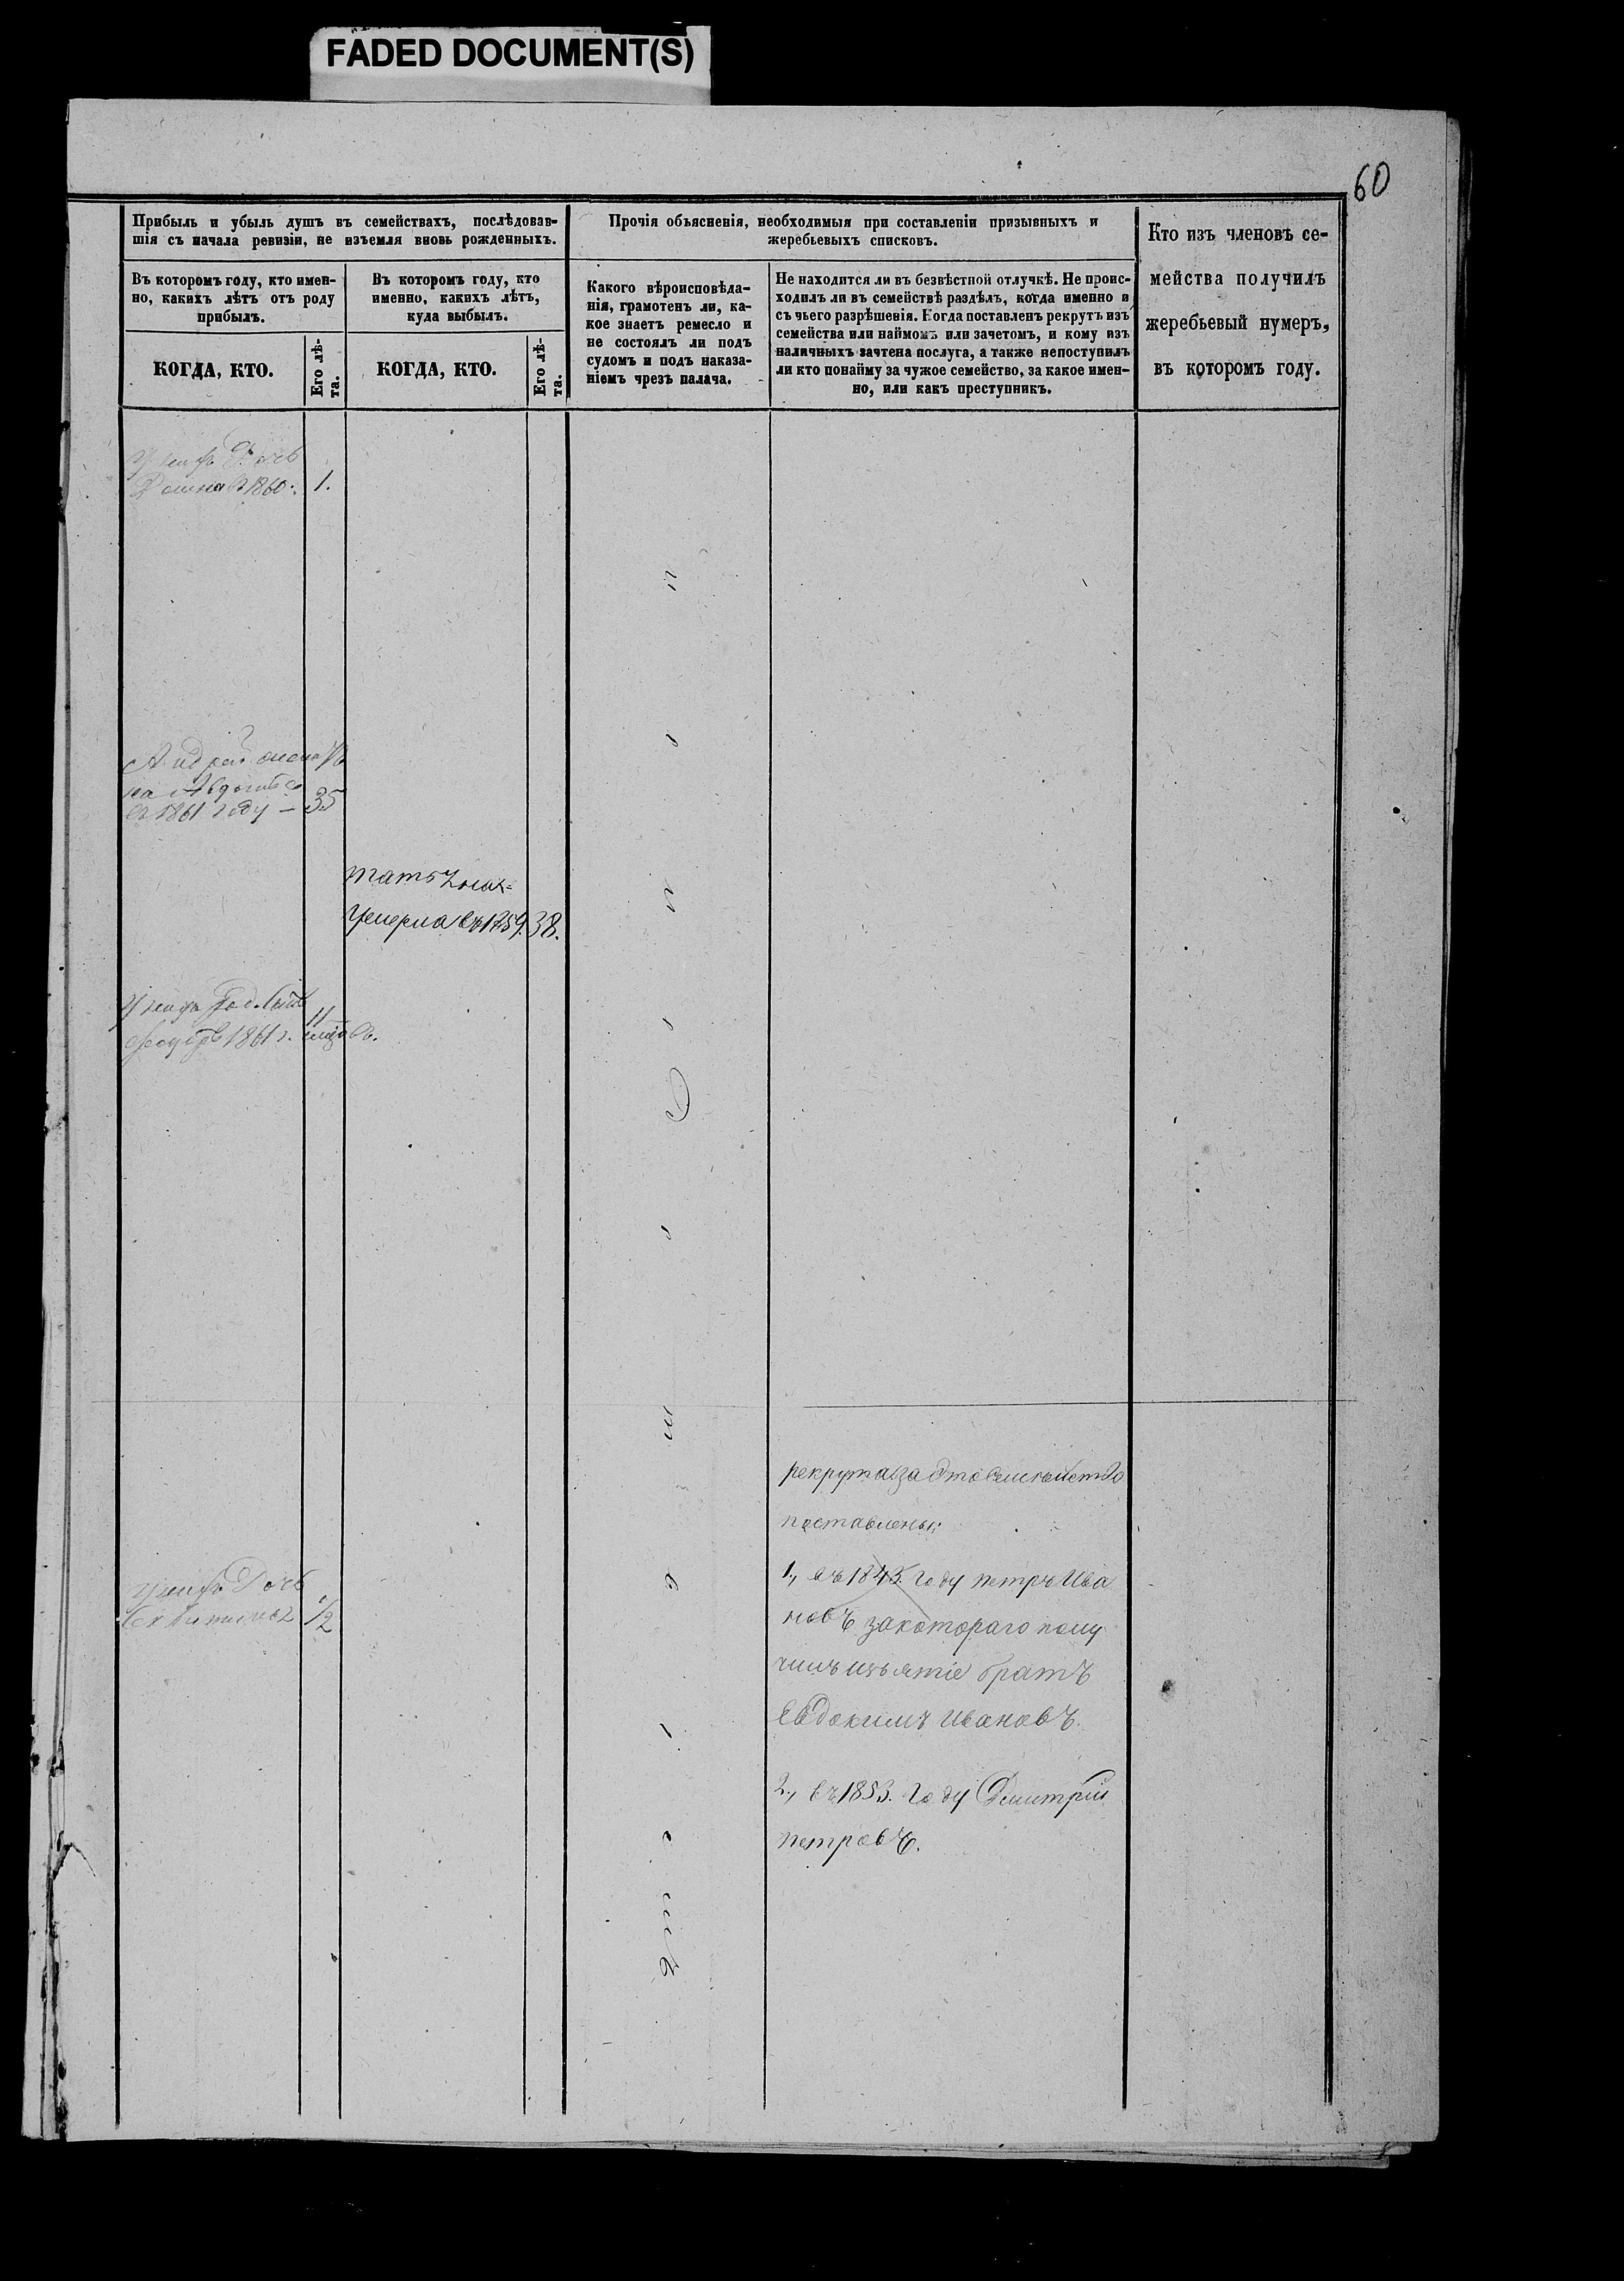 FADED DOCUMENT(S)
60
Прибыль и убыль душъ въ семействахъ, послѣдовав-
шія съ начала ревизіи, не изъемля вновь рожденныхъ.
Прочія объясненія, необходимыя при составленіи призывныхъ и
жеребьевыхъ списковъ.
Кто изъ членовъ се-
мейства получилъ
жеребьевый нумеръ,
въ которомъ году.
Въ которомъ году, кто имен-
но, какихъ лѣтъ отъ роду
прибылъ.
Въ которомъ году, кто
именно, какихъ лѣтъ,
куда выбылъ.
Какого вѣроисповѣда-
нія, грамотенъ ли, ка-
кое знаетъ ремесло и
не состоялъ ли подъ
судомъ и подъ наказа-
ніемъ чрезъ палача.
Не находится ли въ безвѣстной отлучкѣ. Не проис-
ходилъ ли въ семействѣ раздѣлъ, когда именно и
съ чьего разрѣшенія. Когда поставленъ рекрутъ изъ
семейства или наймомъ или зачетомъ, и кому изъ
наличныхъ зачтена послуга, а также непоступилъ
ли кто понайму за чужое семейство, за какое имен-
но, или какъ преступникъ.
КОГДА, КТО.
Его лѣ-
та.
КОГДА, КТО.
Его лѣ-
та.
дочь
1860. 1.
жена
въ 1861 году — 35
умерла въ 1859. 38.
1861 г. 11
дочь
1/2
рекрута за это семейство
поставлены:
1., въ 1845. году петръ Ива
новъ закотораго полу
чилъ изъятіе братъ
Евдокимъ Ивановъ.
2., въ 1853. году Дмитрій
петровъ.